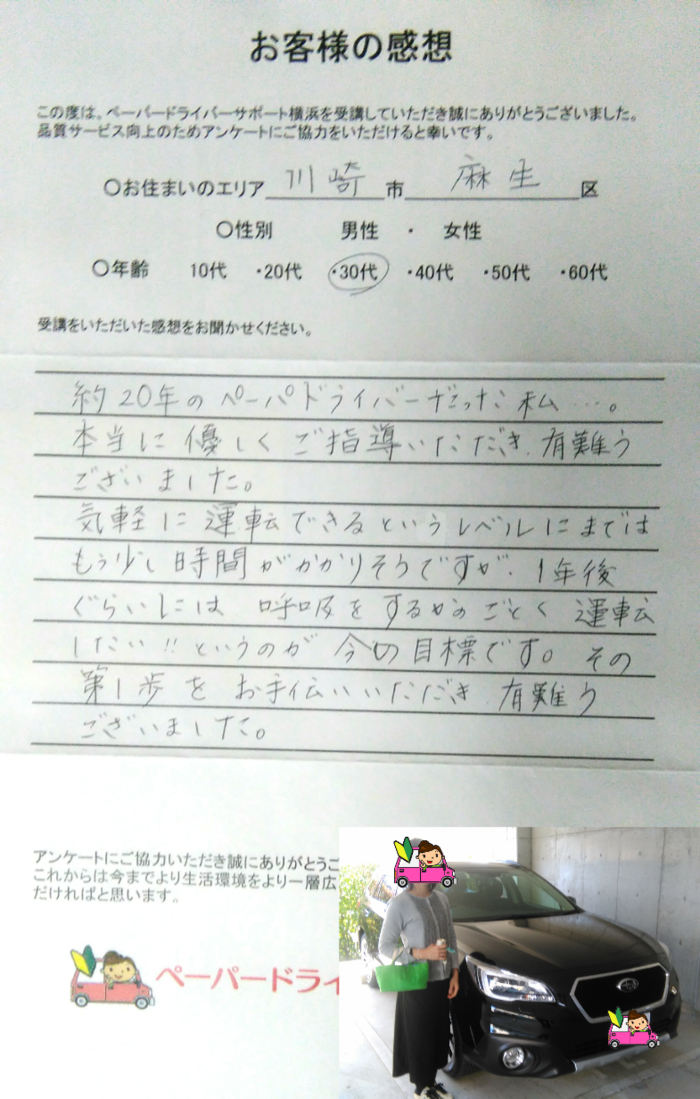 お客様の感想
この度は、ペーパードライバーサポート横浜を受講していただき誠にありがとうございました。
品質サービス向上のためアンケートにご協力をいただけると幸いです。
○お住まいのエリア 川崎 市 麻生 区
○性別 男性 ・ 女性
○年齢 10代 ・20代 ・30代 ・40代 ・50代 ・60代
受講をいただいた感想をお聞かせください。
約20年のペーパドライバーだった私…。
本当に優しくご指導いただき、有難う
ございました。
気軽に運転できるというレベルにまでは
もう少し時間がかかりそうですが、1年後
ぐらいには 呼吸をするかのごとく 運転
したい!!というのが 今の目標です。その
第1歩を お手伝いいただき、有難う
ございました。
アンケートにご協力いただき誠にありがとうご
これからは今までより生活環境をより一層広
だければと思います。
ペーパードライ